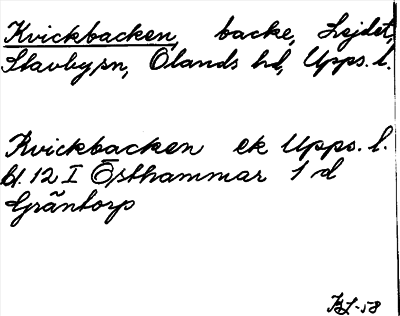 Kvickbacken, backe, Lejdet,
Stavby sn, Olands hd, Upps. l.
Kvickbacken ek Upps. l.
bl. 12 I Östhammar 1 d
Gräntorp
KL-58